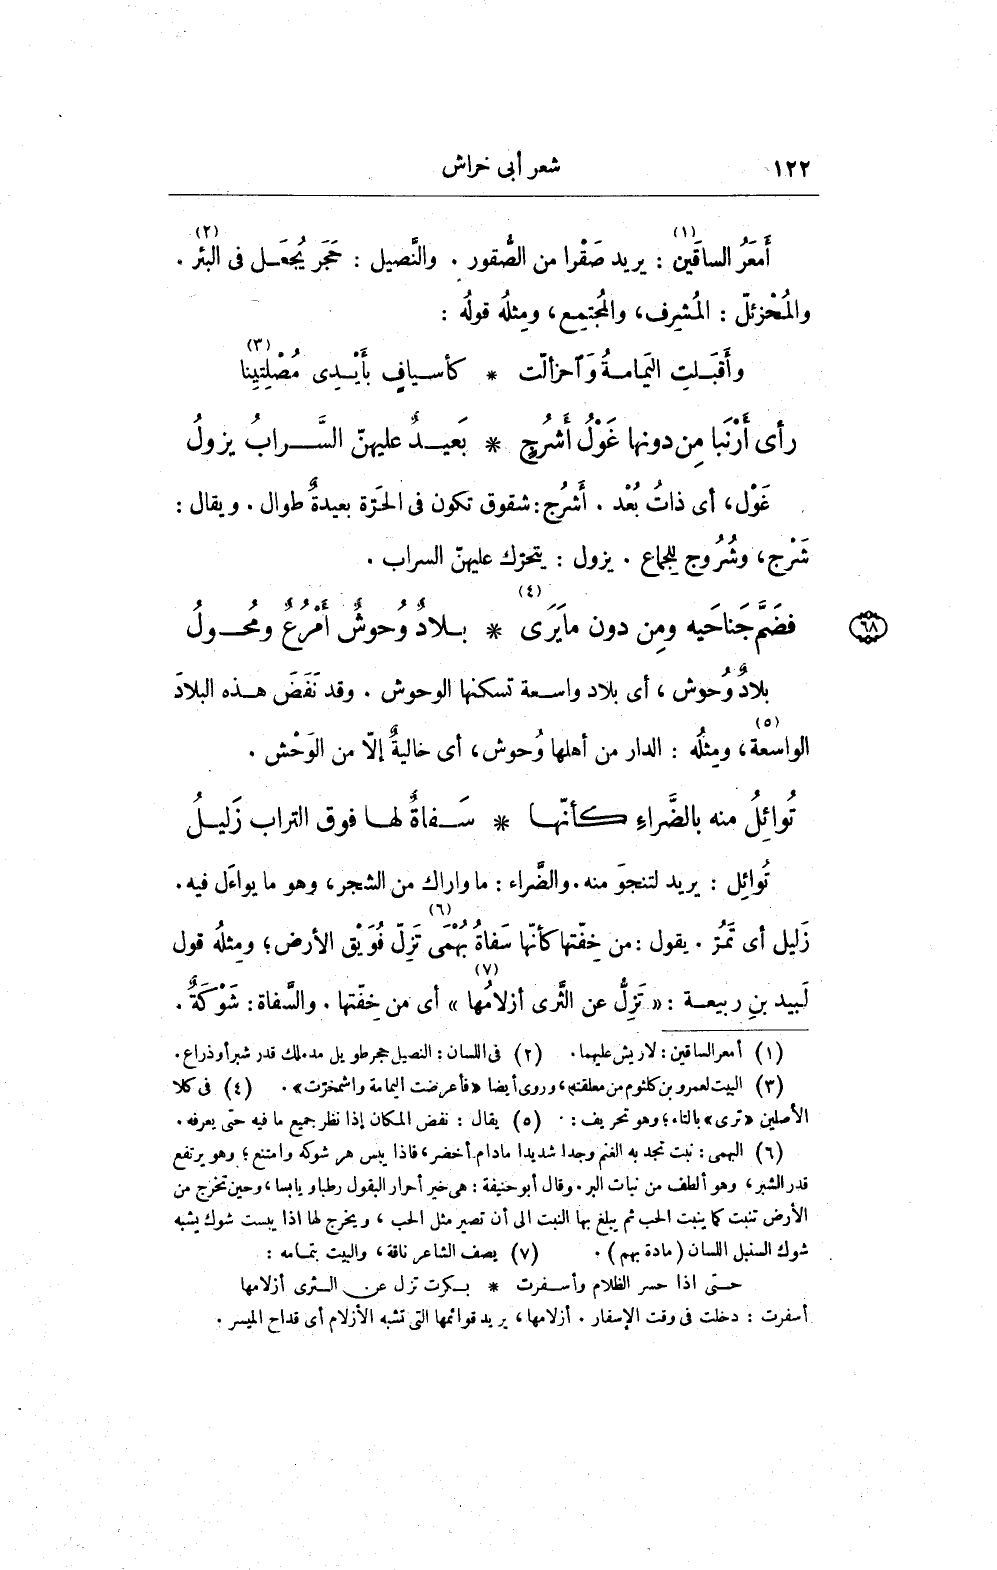 ١٢٢ شعر أبى خراش
أَمعَرُ الساقَين (١) : يريد صَقْرا من الصُّقور . والنَّصيل : حَجَر يُجعَل فى البئر (٢) .
والمُحْزئلّ : المُشرِف، والمُجتمِع، ومِثلُه قولُه :
وأَقبَلتِ اليَمامةُ وَٱحزألّت * كأسيافٍ بأَيْدِى مُصْلِتِينا (٣)
رأى أَرْنَبا مِن دونها غَوْلُ أَشرُجٍ * بَعيدٌ عليهنّ السَّرابُ يزولُ
غَوْل، أى ذاتُ بُعْد . أَشرُج : شقوق تكون فى الحَرّة بعيدةٌ طوال . ويقال :
شَرْج، وشُروج للِجماع . يزول : يتحرّك عليهنّ السراب .
فضَمَّ جَناحَيه ومِن دون مايَرَى (٤) * بلادٌ وُحوشٌ أَمْرُعٌ ومُحولُ
٦٨
بلادٌ وُحوش ، أى بلاد واسعة تسكنها الوحوش . وقد نَفَضَ هذه البلادَ
الواسعة (٥)، ومِثلُه : الدار من أهلها وُحوش، أى خاليةٌ إلّا من الوَحْش .
تُوائِلُ منه بالضَّراءِ كأنّها * سَفاةٌ لها فوق التراب زَليلُ
تُوائِل : يريد لتنجوَ منه . والضَّراء : ما واراك من الشجر، وهو ما يواءَل فيه .
زَليل أى تَمُرّ . يقول : من خِفّتها كأنّها سَفاةُ بُهْمَى (٦) تَزِلّ فُوَيْق الأرض؛ ومِثلُه قول
لَبيد بنِ ربيعة : « تَزِلُّ عن الثَّرى أزلامُها (٧) » أى من خفّتها . والسَّفاة : شَوْكَةٌ .
(١) أمعر الساقين : لا ريش عليهما . (٢) فى اللسان : النصيل حجر طويل مدملك قدر شبر أو ذراع .
(٣) البيت لعمرو بن كلثوم من معلقته، وروى أيضا «فأعرضت اليمامة واشمخرّت» . (٤) فى كلا
الأصلين «ترى» بالتاء؛ وهو تحريف . (٥) يقال : نفض المكان إذا نظر جميع ما فيه حتى يعرفه .
(٦) البهمى : نبت تجد به الغنم وجدا شديدا مادام أخضر، فاذا يبس هر شوكه وامتنع؛ وهو يرتفع
قدر الشبر، وهو ألطف من نبات البر . وقال أبو حنيفة : هى خير أحرار البقول رطبا ويابسا، وحين تخرج من
الأرض تنبت كما ينبت الحب ثم يبلغ بها النبت الى أن تصير مثل الحب ، ويخرج لها اذا يبست شوك يشبه
شوك السنبل اللسان (مادة بهم) . (٧) يصف الشاعر ناقة، والبيت بتمامه :
حتى اذا حسر الظلام وأسفرت * بكرت تزل عن الثرى أزلامها
أسفرت : دخلت فى وقت الإسفار . أزلامها، يريد قوائمها التى تشبه الأزلام أى قداح الميسر .